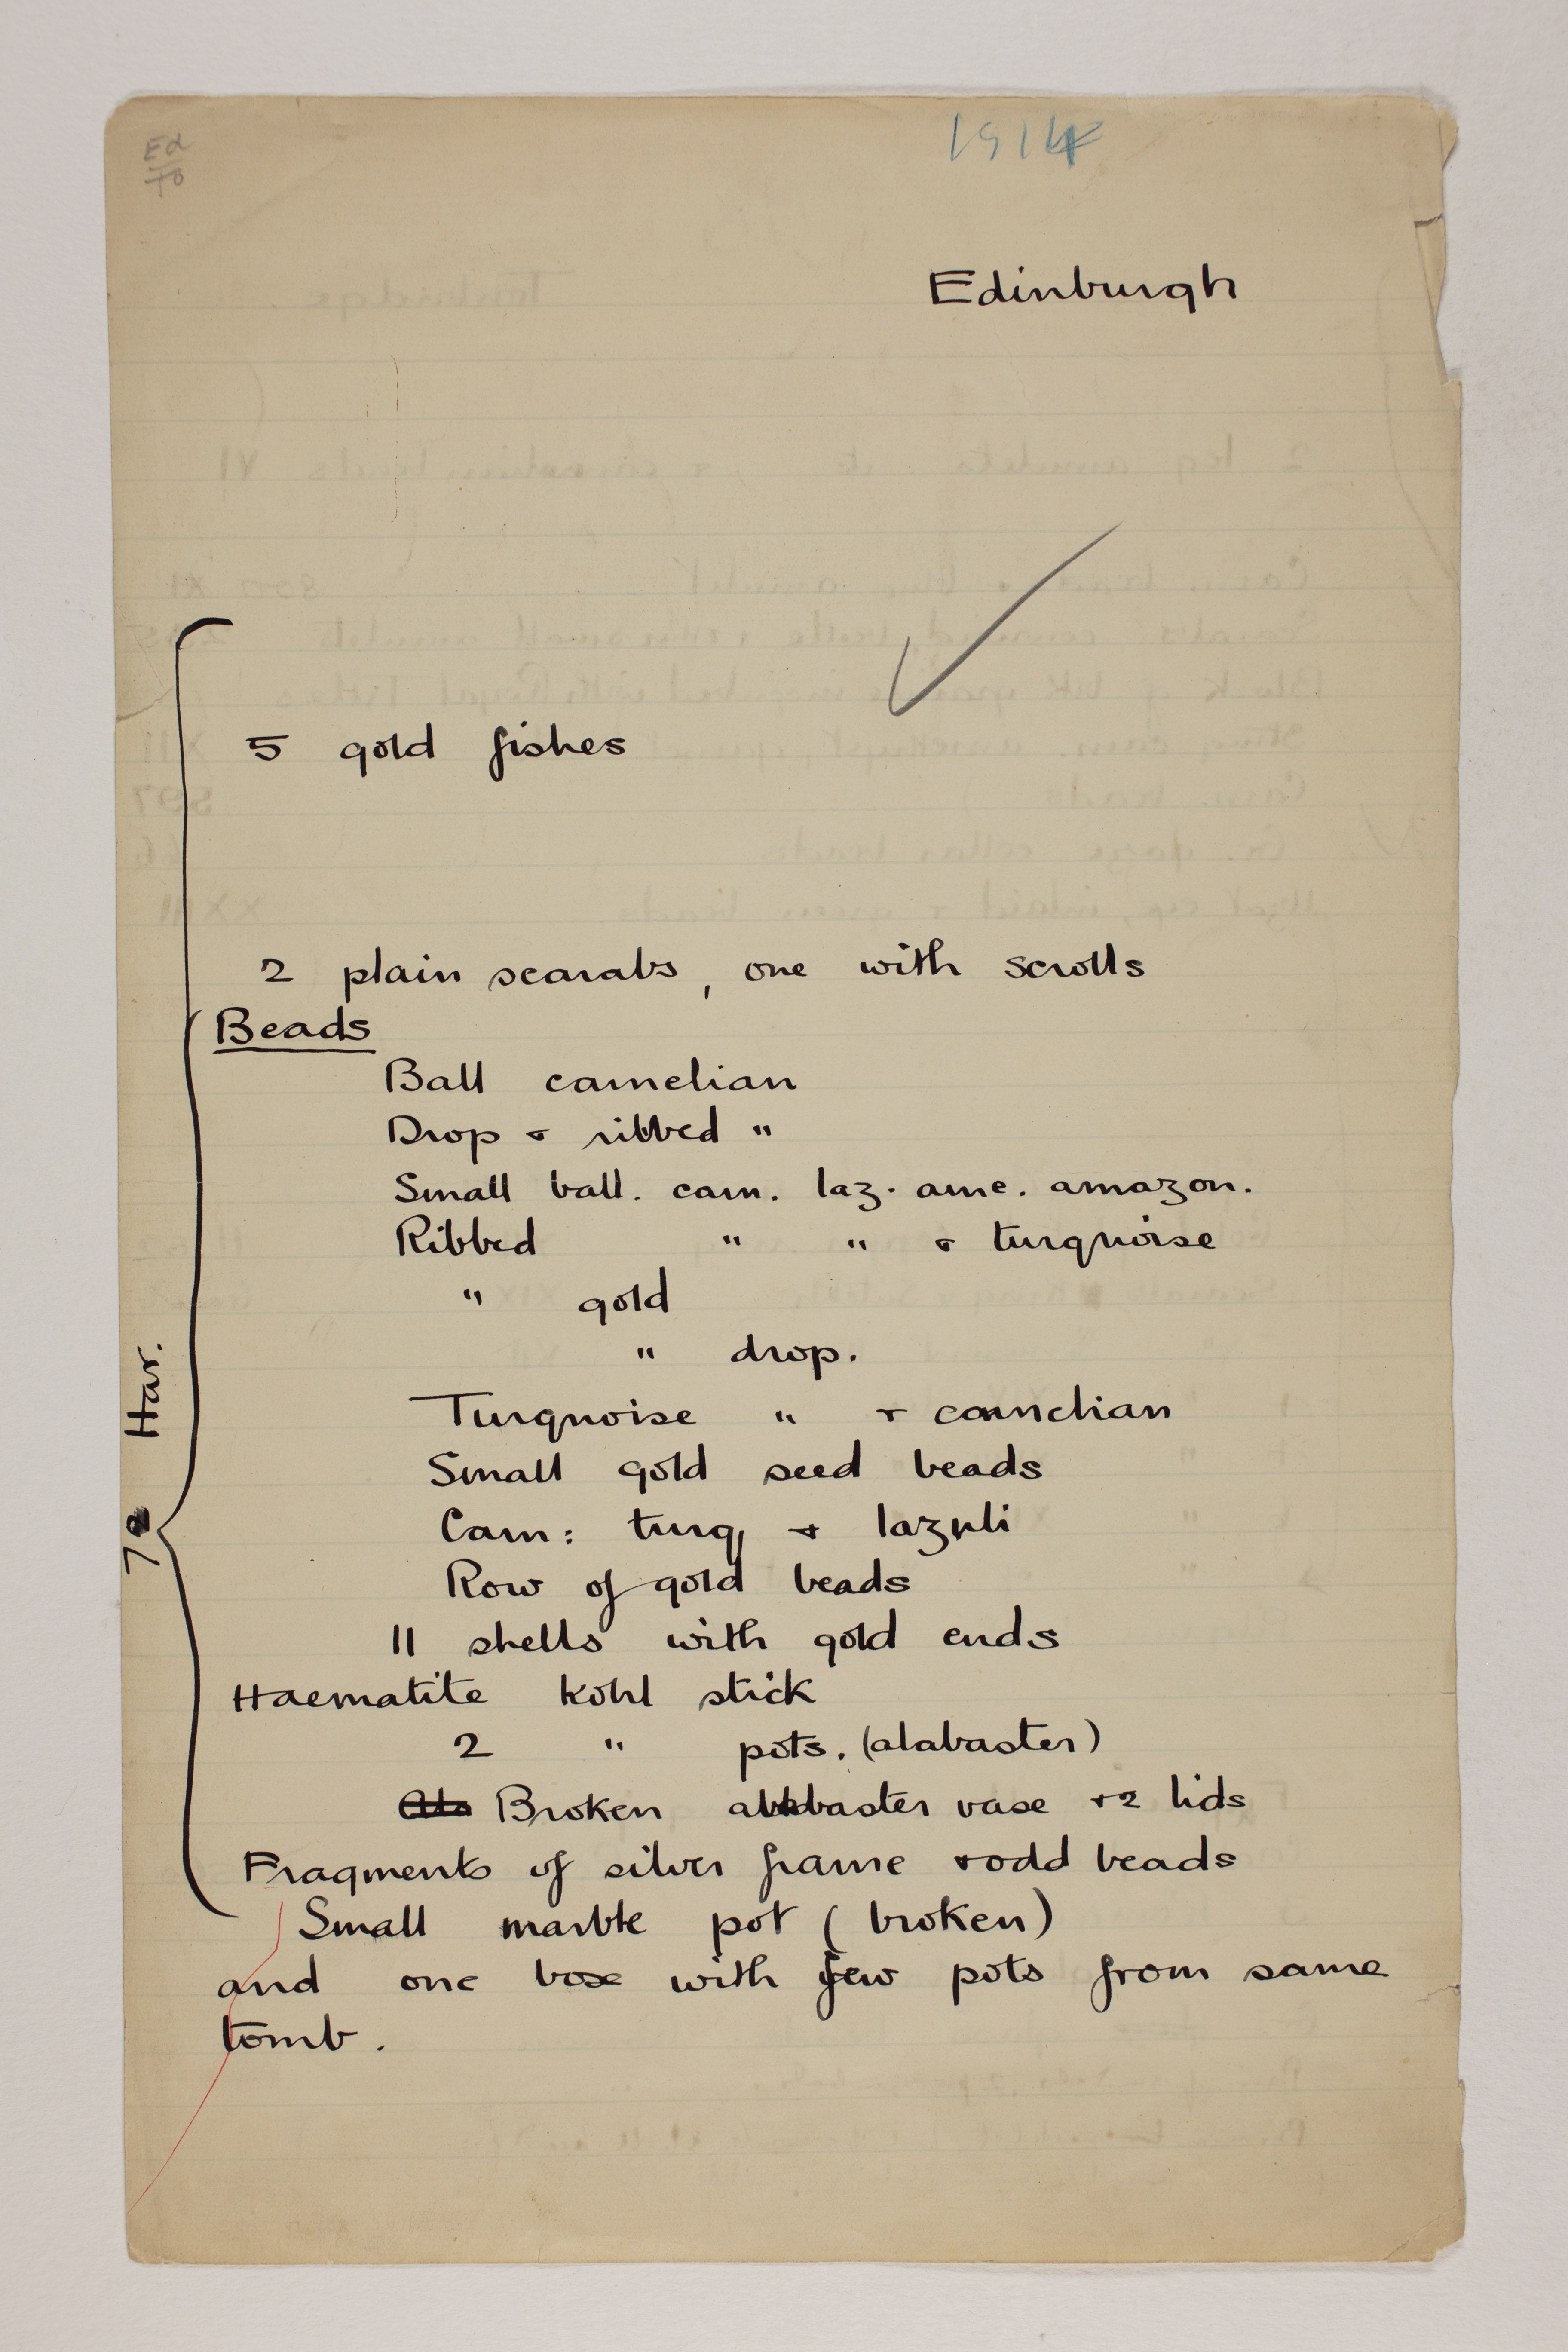 Ed
70
1914
Edinburgh
5 gold fishes
2 plain scarabs, one with scrolls
Beads
Ball carnelian
Drop + ribbed "
Small ball. carn. laz. ame. amazon.
Ribbed " " + turquoise
" gold
" drop.
Turquoise " + carnelian
Small gold seed beads
Carn: turq + lazuli
Row of gold beads
11 shells with gold ends
Haematite kohl stick
2 " pots. (alabaster)
Broken alabaster vase + 2 lids
Fragments of silver frame + odd beads
Small marble pot (broken)
and one box with few pots from same
tomb.
Har.